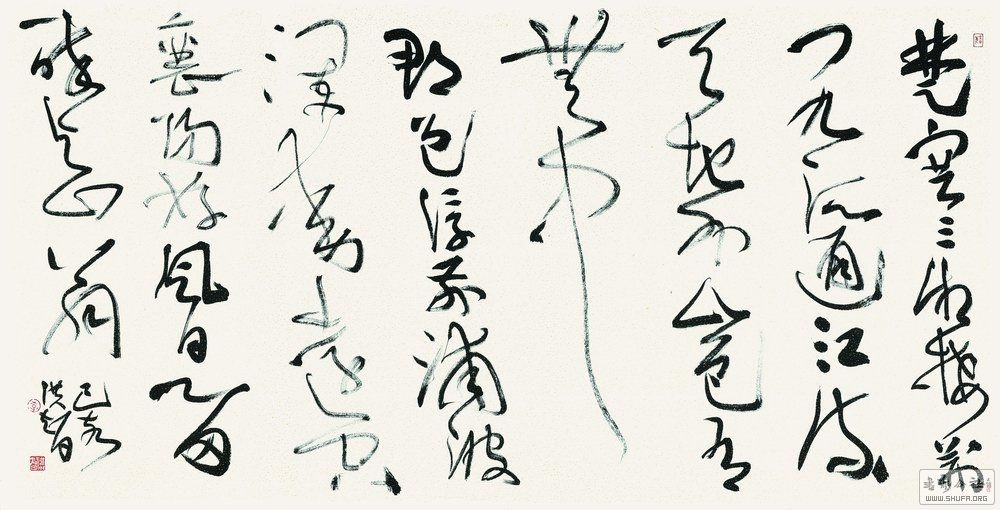 楚塞三湘接荆
门九派通江流
天地外山色有
無中
郡邑浮前浦波
澜動遠空
襄陽好風日留
醉与山翁
己亥
洪
WWW.SHUFA.ORG